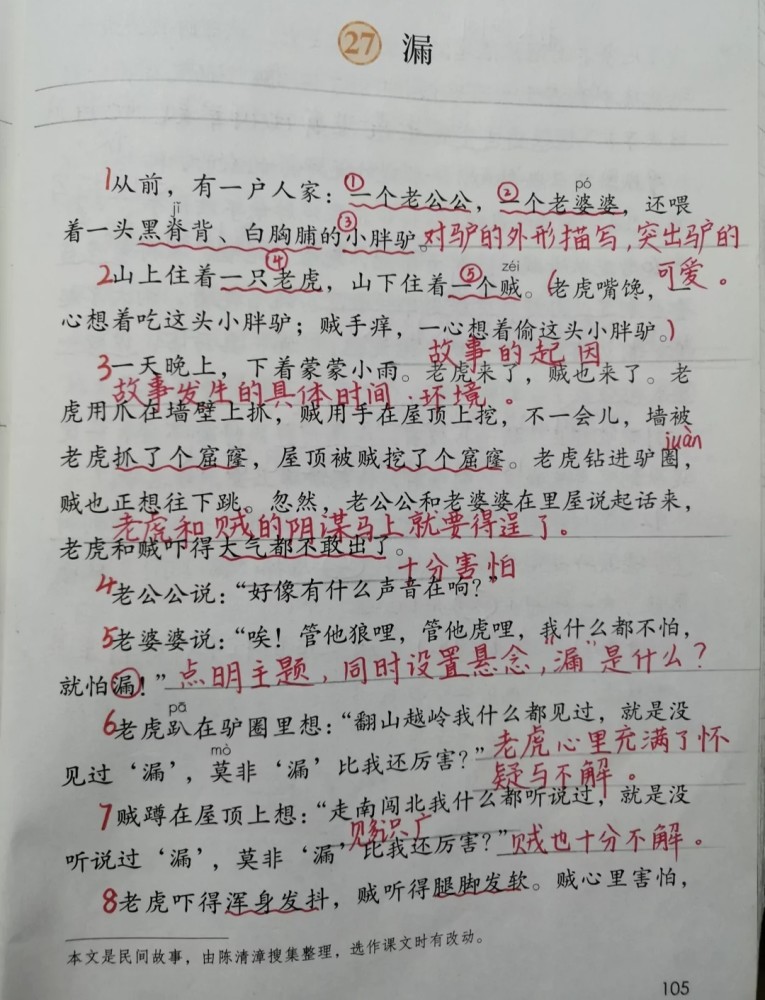 27 漏
1从前，有一户人家：①一个老公公，②一个老婆婆，还喂
pó
jǐ
着一头黑脊背、白胸脯的③小胖驴。对驴的外形描写，突出驴的
可爱。
2山上住着④一只老虎，山下住着⑤一个贼。(老虎嘴馋，一
zéi
心想着吃这头小胖驴；贼手痒，一心想着偷这头小胖驴。)
故事的起因
3一天晚上，下着蒙蒙小雨。老虎来了，贼也来了。老
故事发生的具体时间、环境。
虎用爪在墙壁上抓，贼用手在屋顶上挖，不一会儿，墙被
juàn
老虎抓了个窟窿，屋顶被贼挖了个窟窿。老虎钻进驴圈，
贼也正想往下跳。忽然，老公公和老婆婆在里屋说起话来，
老虎和贼的阴谋马上就要得逞了。
老虎和贼吓得大气都不敢出了。
十分害怕
4老公公说：“好像有什么声音在响？”
5老婆婆说：“唉！管他狼哩，管他虎哩，我什么都不怕，
就怕漏！”点明主题，同时设置悬念，“漏”是什么？
pā
6老虎趴在驴圈里想：“翻山越岭我什么都见过，就是没
mò
见过‘漏’，莫非‘漏’比我还厉害？”老虎心里充满了怀
疑与不解。
7贼蹲在屋顶上想：“走南闯北我什么都听说过，就是没
见多识广
听说过‘漏’，莫非‘漏’比我还厉害？”贼也十分不解。
8老虎吓得浑身发抖，贼听得腿脚发软。贼心里害怕，
本文是民间故事，由陈清漳搜集整理，选作课文时有改动。
105